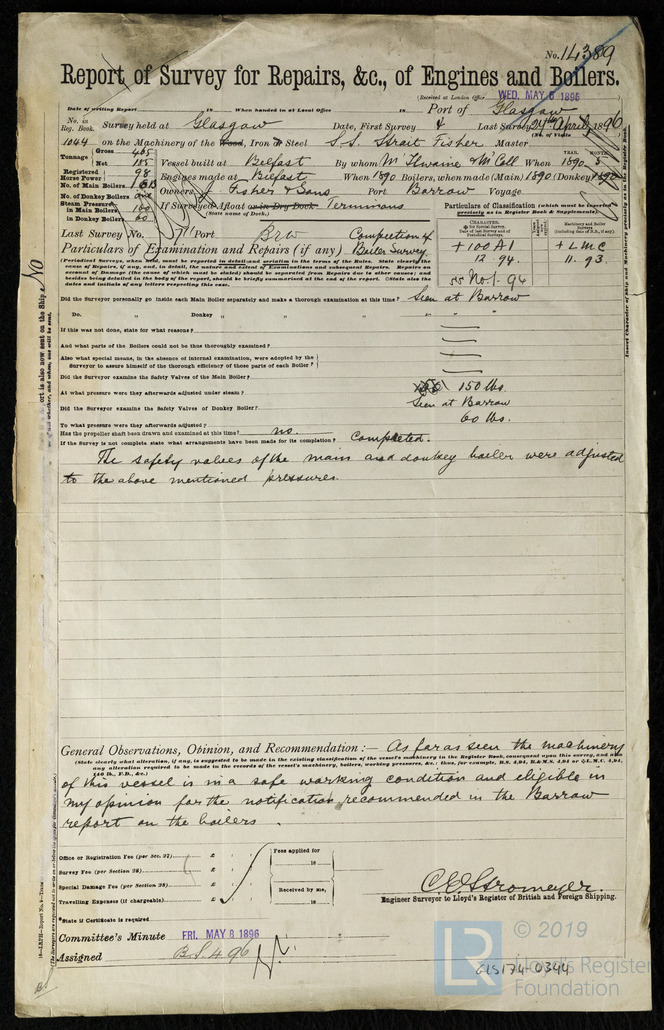 No. 14389
Report of Survey for Repairs, &c., of Engines and Boilers.
(Received at London Office WED. MAY 6 1896
Date of writing Report 18 When handed in at Local Office 18 Port of Glasgow
No. in Reg. Book. Survey held at Glasgow Date, First Survey & Last Survey 29th April 1896
(No. of Visits
1044 on the Machinery of the Wood, Iron or Steel S.S. Strait Fisher Master
Tonnage Gross 465 Net 185 Vessel built at Belfast By whom McIlwaine & McColl When 1890 YEAR. MONTH. 5
Registered Horse Power 98 Engines made at Belfast When 1890 Boilers, when made (Main) 1890 (Donkey) 1890
No. of Main Boilers 1 Owners J Fisher & Sons Port Barrow Voyage
No. of Donkey Boilers one
Steam Pressure in Main Boilers 160 If Surveyed Afloat or in Dry Dock Terminus
in Donkey Boilers 60 (State name of Dock.)
Last Survey No. Port Brw Completion of
Particulars of Examination and Repairs (if any) Boiler Survey.
Particulars of Classification (which must be inserted precisely as in Register Book & Supplements).
CHARACTER.
+ 100 A1 + LMC
12 94. 11. 93
ss No.1 - 94
(Periodical Surveys, when held, must be reported in detail and seriatim in the terms of the Rules. State clearly the cause of Repairs, if any, and, in detail, the nature and extent of Examinations and subsequent Repairs. Repairs on account of Damage (the cause of which must be stated) should be separated from Repairs due to other causes; and besides being detailed in the body of the report, should be briefly summarised at the end of the report. State also the dates and initials of any letters respecting this case.
Did the Surveyor personally go inside each Main Boiler separately and make a thorough examination at this time? Seen at Barrow
Do. " Donkey " " " " "
If this was not done, state for what reasons?
And what parts of the Boilers could not be thus thoroughly examined?
Also what special means, in the absence of internal examination, were adopted by the Surveyor to assure himself of the thorough efficiency of those parts of each Boiler?
Did the Surveyor examine the Safety Valves of the Main Boiler?
At what pressure were they afterwards adjusted under steam? 150 lbs.
Did the Surveyor examine the Safety Valves of Donkey Boiler? Seen at Barrow
To what pressure were they afterwards adjusted? 60 lbs.
Has the propeller shaft been drawn and examined at this time? no.
If the Survey is not complete state what arrangements have been made for its completion? Completed.
The safety valves of the main and donkey boiler were adjusted
to the above mentioned pressures.
General Observations, Opinion, and Recommendation :— As far as seen the machinery
(State clearly what alteration, if any, is suggested to be made in the existing classification of the vessel's machinery in the Register Book, consequent upon this survey, and also any alteration required to be made in the records of the vessel's machinery, boilers, working pressures, &c.; thus, for example, B.S. 4,94, B.&M.S. 4,94 or L.M.C. 4,94, 140 lb., F.D., &c.)
of this vessel is in a safe working condition and eligible in
my opinion for the notification recommended in the Barrow
report on the boilers.
Office or Registration Fee (per Sec. 27) £
Survey Fee (per Section 28) £
Special Damage Fee (per Section 28) £
Travelling Expenses (if chargeable) £
Fees applied for 18
Received by me, 18
C.E. Stromeyer.
Engineer Surveyor to Lloyd's Register of British and Foreign Shipping.
*State if Certificate is required
Committee's Minute FRI. MAY 8 1896
Assigned B.S. 4.96
© 2019
LR Lloyd's Register Foundation
CLS174-0344